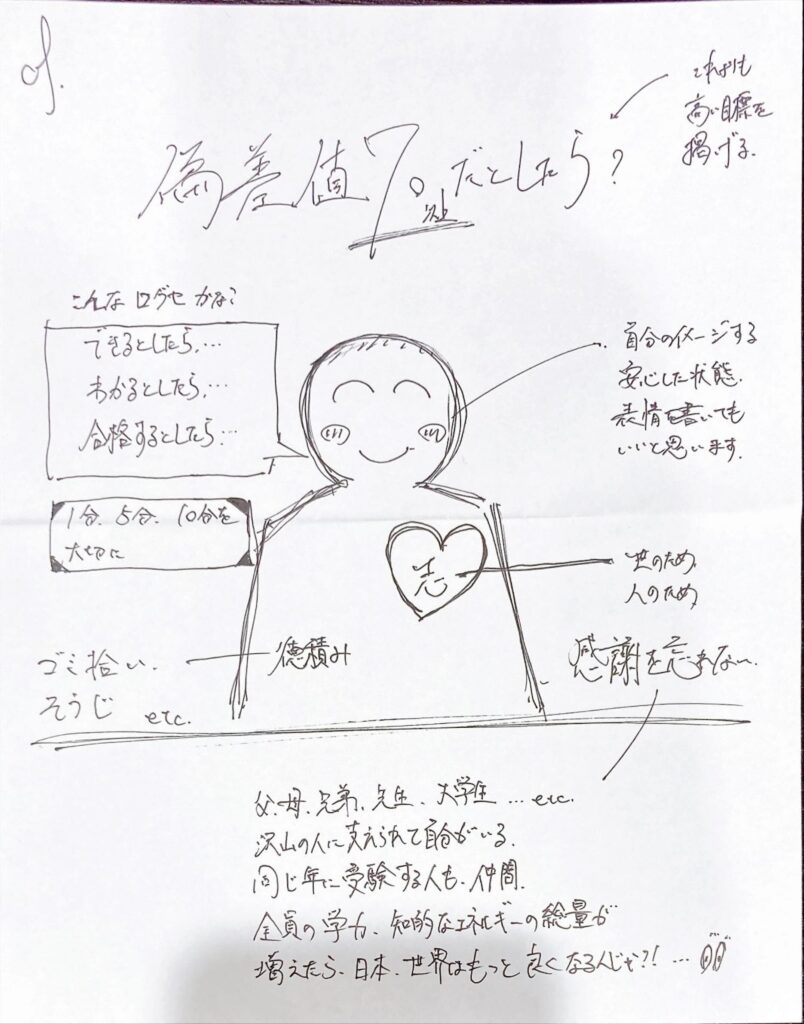 ex.
これよりも
高い目標を
掲げる.
偏差値70以上だとしたら?
こんな口グセかな?
できるとしたら…
わかるとしたら…
合格するとしたら…
自分のイメージする
安心した状態.
表情を書いても
いいと思います.
1分、5分、10分を
大切に
志
世のため
人のため
ゴミ拾い.
そうじ etc.
徳積み
感謝を忘れない.
父、母、兄弟、先生、大学生…etc.
沢山の人に支えられて自分がいる.
同じ年に受験する人も、仲間.
全員の学力、知的なエネルギーの総量が
増えたら、日本、世界はもっと良くなるんじゃ?!…